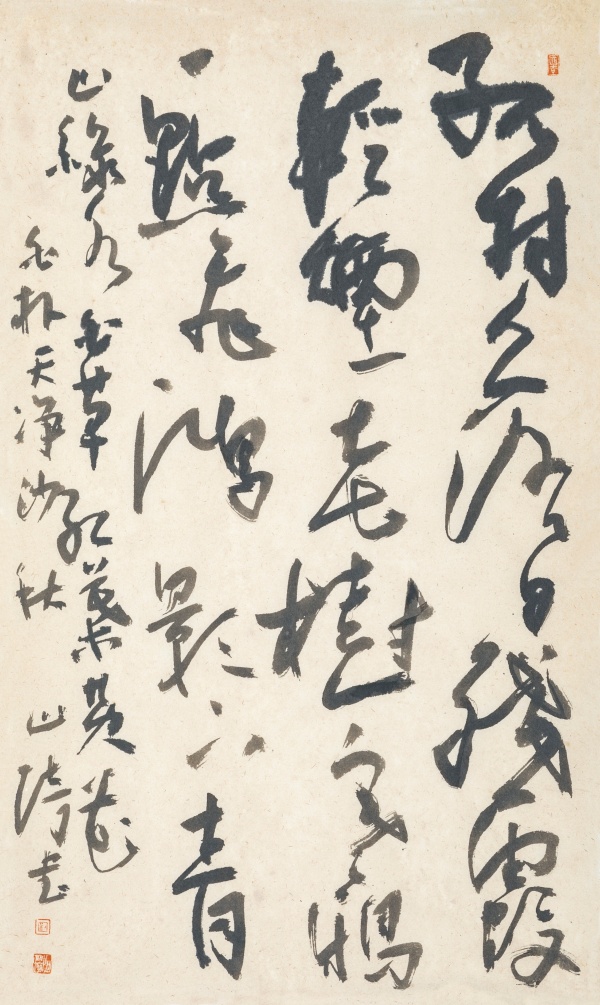 孤村落日殘霞
輕壄老樹寒鴉
一點飛鴻影下青
山綠水白草紅葉黄花
白朴天净沙秋 山書